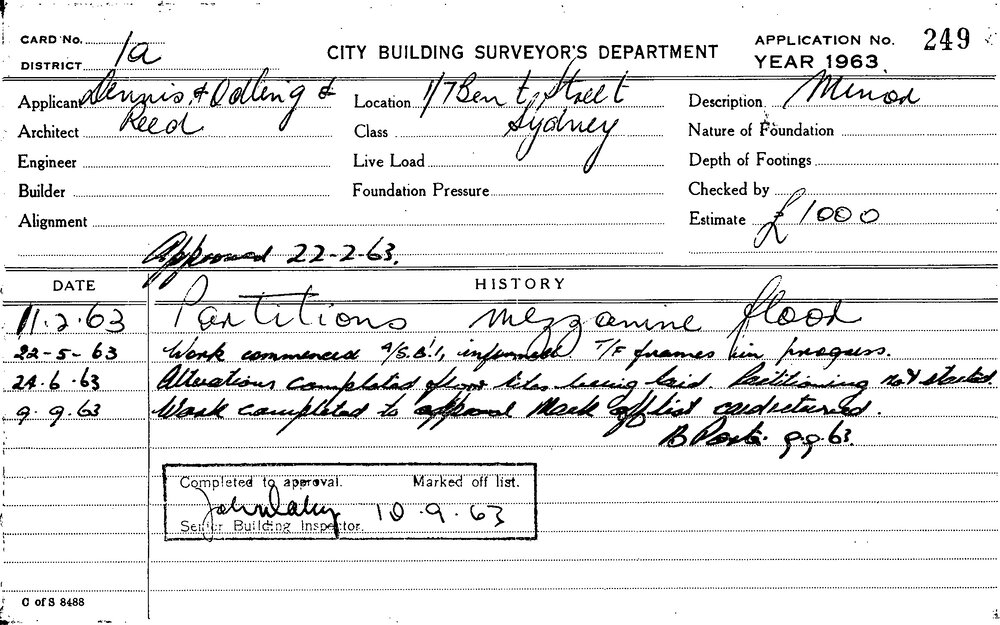 CARD No. 1a
DISTRICT
CITY BUILDING SURVEYOR'S DEPARTMENT
APPLICATION No. 249
YEAR 1963
Applicant Dennis & Odling &
Reed
Location 1/7 Bent Street
Sydney
Description Minor
Architect
Class
Nature of Foundation
Engineer
Live Load
Depth of Footings
Builder
Foundation Pressure
Checked by
Alignment
Estimate £1000
Approved 22-2-63.
DATE
HISTORY
11.2.63 Partitions mezzanine floor
22-5-63 Work commenced informed T/F frames in progress.
24.6.63 Alterations completed floor tiles being laid. Partitioning not started.
9.9.63 Work completed to approval Mark off list card returned.
9.9.63.
Completed to approval. Marked off list.
10.9.63
Senior Building Inspector.
C of S 8488